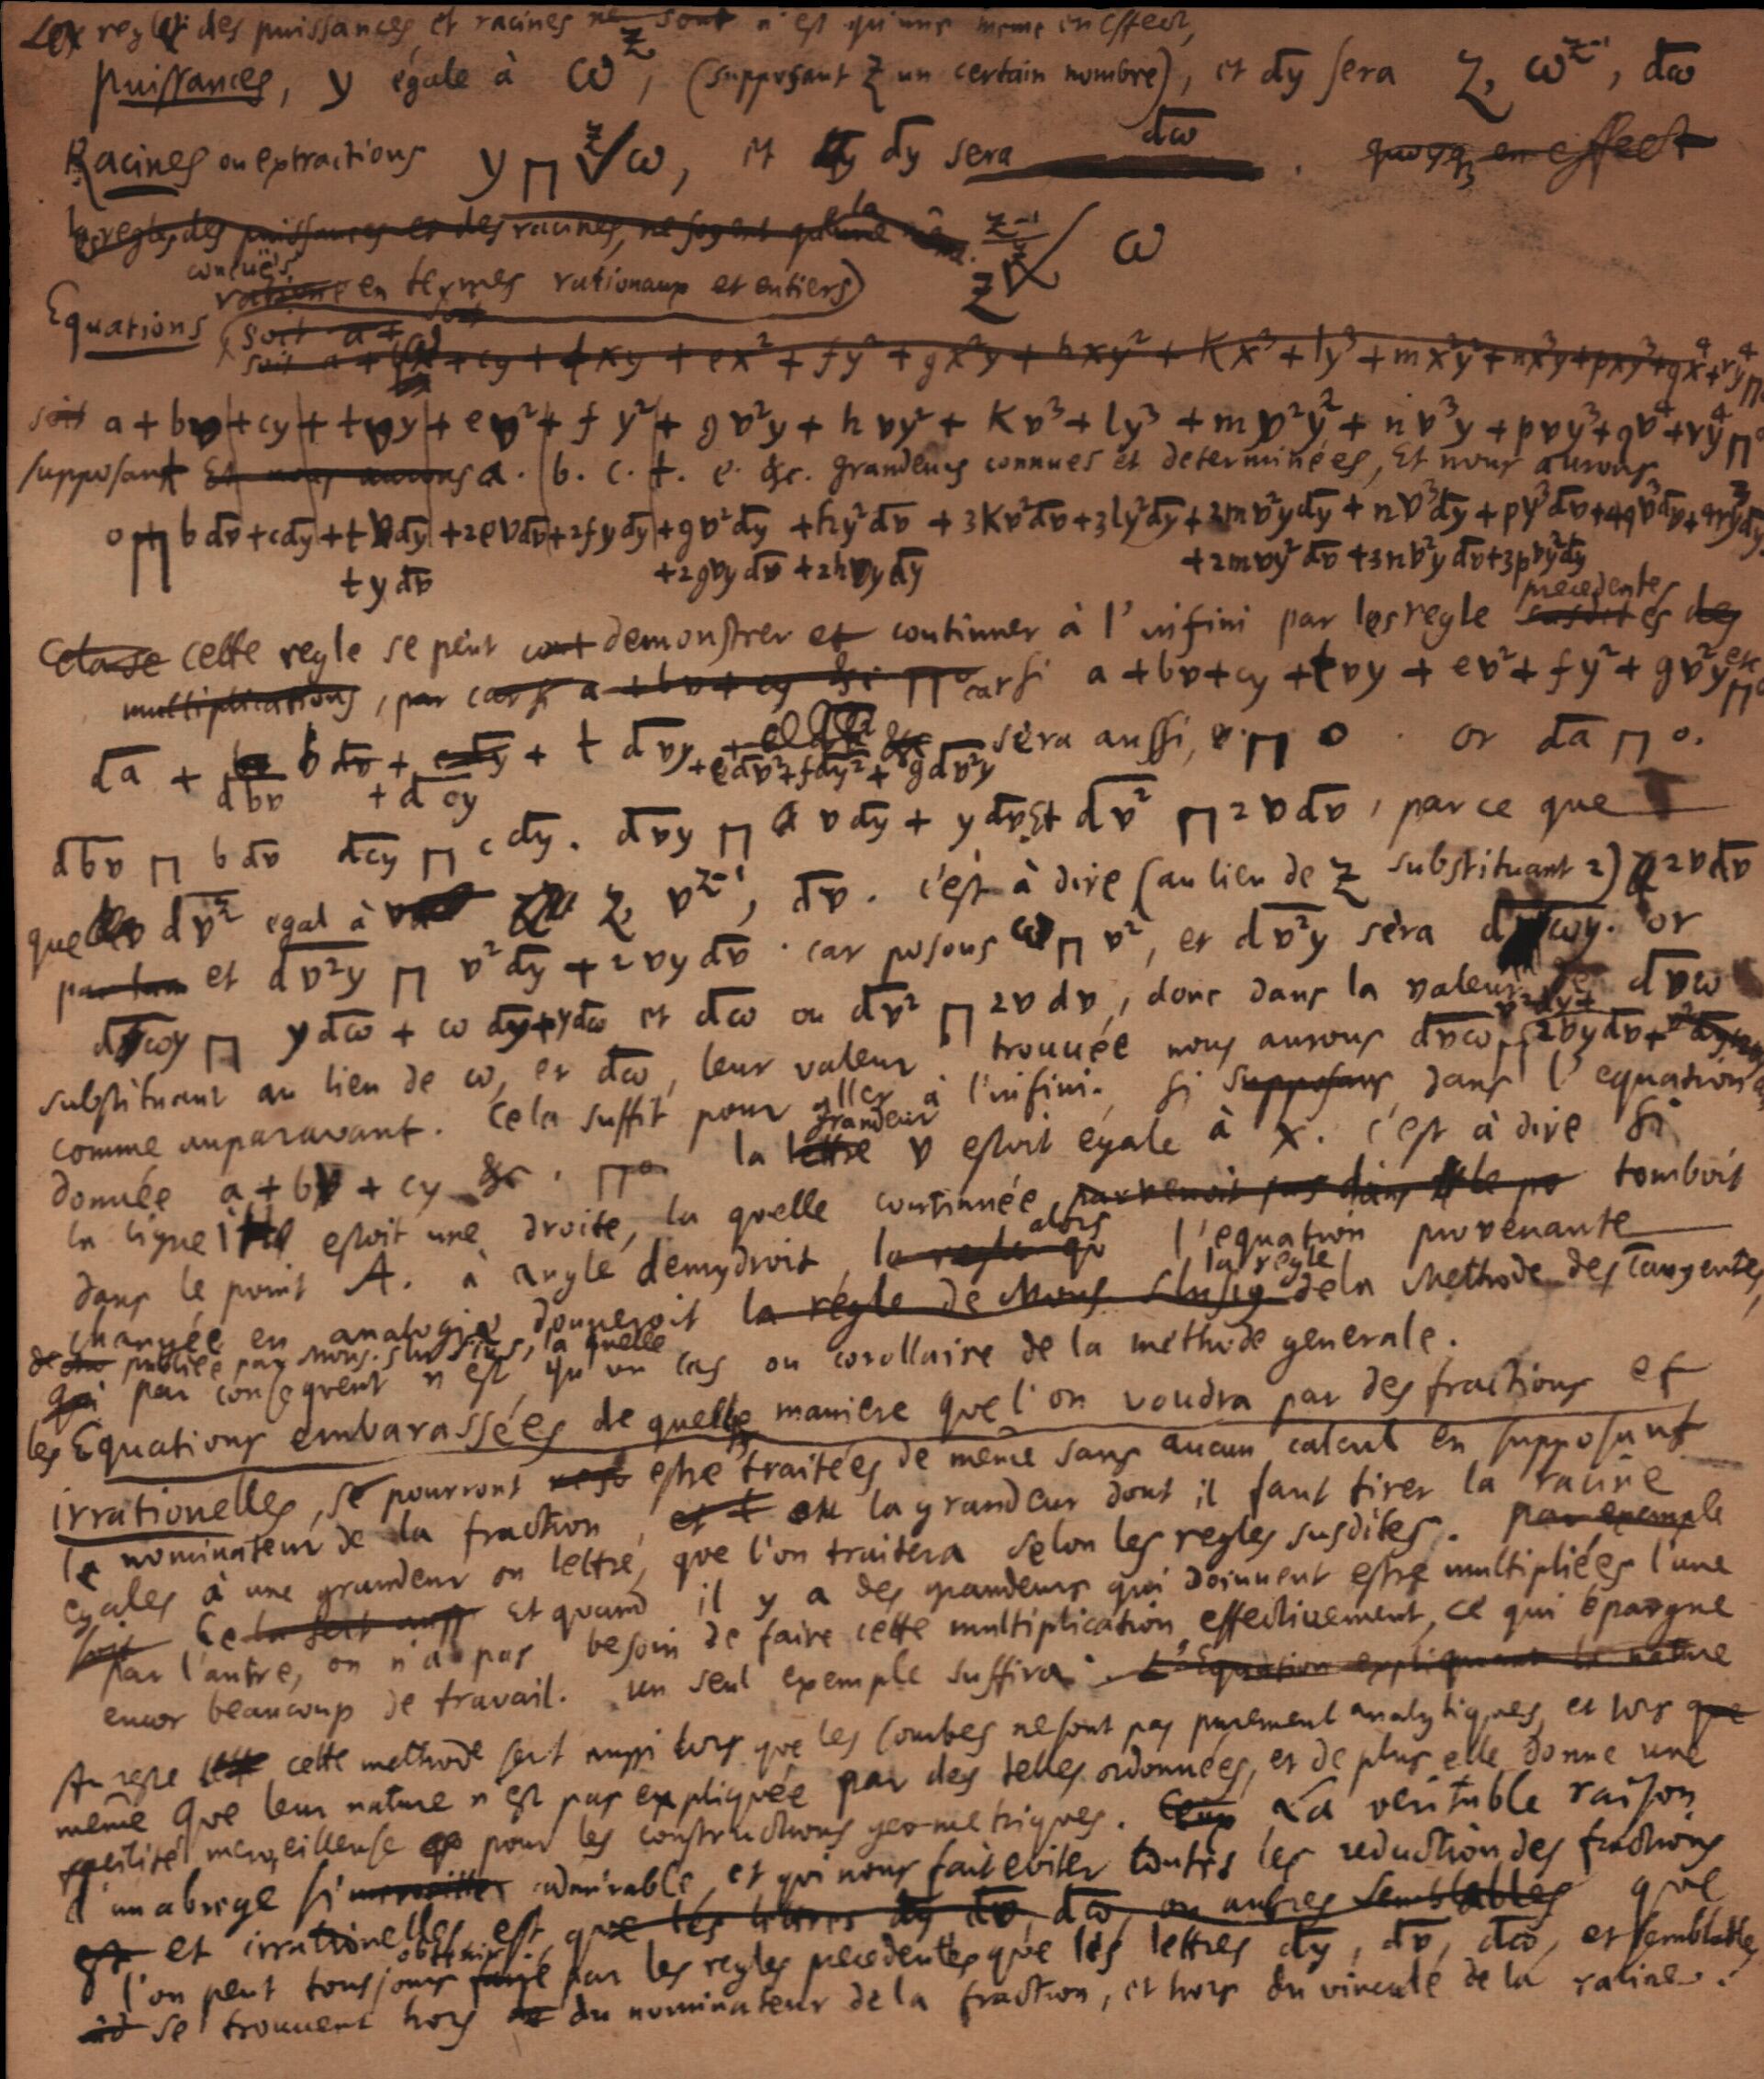 Les regles des puissances et racines ne sont n'est qu'une meme en effect,
puissances, y égale à ω^z, (supposant z un certain nombre), et d̅y̅ sera z, ω^{z-1}, d̅ω̅
Racines ou extractions y ⊓ ᶻ√ω, et d̅y̅ d̅y̅ sera d̅ω̅ . quoyq, en effect
les regles des puissances et des racines, ne soyent qu'une
z ᶻ⁻¹/ᶻ√ ω
conçuës
ratione en termes rationaux et entiers)
Equations (soit a + soit
soit a + bx + cy + txy + ex² + fy² + gx²y + hxy² + kx³ + ly³ + mx²y² + nx³y + pxy³ + qx⁴ + ry⁴ ⊓
soit a + bv + cy + tvy + ev² + fy² + gv²y + hvy² + kv³ + ly³ + mv²y² + nv³y + pvy³ + qv⁴ + ry⁴ ⊓ 0
supposant Et nous aurons a. b. c. t. e. &c. grandeurs connues et determinées, Et nous aurons
0 ⊓ b d̅v̅ + c d̅y̅ + t v d̅y̅ + 2ev d̅v̅ + 2fy d̅y̅ + gv² d̅y̅ + hy² d̅v̅ + 3kv² d̅v̅ + 3ly² d̅y̅ + 2mv²y d̅y̅ + nv³ d̅y̅ + py³ d̅v̅ + 4qv³ d̅v̅ + 4ry³ d̅y̅
t y d̅v̅ + 2gvy d̅v̅ + 2hvy d̅y̅ + 2mvy² d̅v̅ + 3nv²y d̅v̅ + 3pvy² d̅y̅
precedentes
Cela se cette regle se peut demonstrer et continuer à l'infini par les regle susdites des
multiplications, par car si a + bv + cy &c ⊓ 0 car si a + bv + cy + tvy + ev² + fy² + gv²y etc ⊓ 0
d̅a̅ + b d̅v̅ + c d̅y̅ + t d̅v̅y̅ &c sera aussi, ⊓ 0 . or d̅a̅ ⊓ 0.
d̅b̅v̅ + d̅c̅y̅ + e d̅v̅²̅ + f d̅y̅²̅ + g d̅v̅²̅y̅
d̅b̅v̅ ⊓ b d̅v̅ d̅c̅y̅ ⊓ c d̅y̅. d̅v̅y̅ ⊓ v d̅y̅ + y d̅v̅ Et d̅v̅²̅ ⊓ 2v d̅v̅, parce que
que d̅v̅ᶻ̅ egal à z, v^{z-1}, d̅v̅. c'est à dire (au lieu de z substituant 2) 2v d̅v̅
et d̅v̅²̅y̅ ⊓ v² d̅y̅ + 2vy d̅v̅. car posons ω ⊓ v², et d̅v̅²̅y̅ sera d̅ω̅y̅. or
d̅ω̅y̅ ⊓ y d̅ω̅ + ω d̅y̅ + y d̅ω̅ et d̅ω̅ ou d̅v̅²̅ ⊓ 2v dv, donc dans la valeur de d̅v̅ω̅
substituant au lieu de ω, et d̅ω̅, leur valeur trouuée nous aurons d̅v̅ω̅ ⊓ v² d̅y̅ + 2vy d̅v̅ +
comme auparavant. Cela suffit pour aller à l'infini. Si supposons dans l'equation
grandeur
donnée a + bv + cy &c. ⊓ 0 la lettre v estoit égale à x. c'est à dire si
la ligne estoit une droite, la quelle continuée parvenoit pas dans le po tomboit
dans le point A. à angle demydroit, la regle qu alors l'equation provenante
changée en analogie donneroit la régle de Mons. Slusig la regle de la Methode des Tangentes,
publiée par Mons. Slusius, la quelle
qui par consequent n'est qu'un cas ou corollaire de la méthode generale.
les Equations embarassées de quelle maniere que l'on voudra par des fractions et
irrationelles, se pourront estre traitées de même sans aucun calcul en supposant
le nominateur de la fraction, et t ou la grandeur dont il faut tirer la racine
egales à une grandeur ou lettre, que l'on traitera selon les regles susdites. par exemple
soit Ce la sert aussi Et quand il y a des grandeurs qui doiuuent estre multipliées l'une
par l'autre, on n'a pas besoin de faire cette multiplication effectivement, ce qui épargne
encor beaucoup de travail. un seul exemple suffira. L'Equation expliquant la nature
Au reste cette methode sert aussi lors que les Courbes ne sont pas purement analytiques, et lors que
même que leur nature n'est pas expliquée par des telles ordonnées, et de plus elle donne une
facilité merveilleuse pour les constructions geometriques. La veritable raison
d'un abrege si merveilleux admirable, et qui nous fait eviter toutes les reduction des fractions
est et irrationelles est que les lettres d̅y̅ d̅v̅, d̅ω̅, ou autres semblables que
l'on peut tousjours faire obtenir par les regles precedentes que les lettres d̅y̅, d̅v̅, d̅ω̅, et semblables
se trouuent hors du nominateur de la fraction, et hors du vincule de la racine.